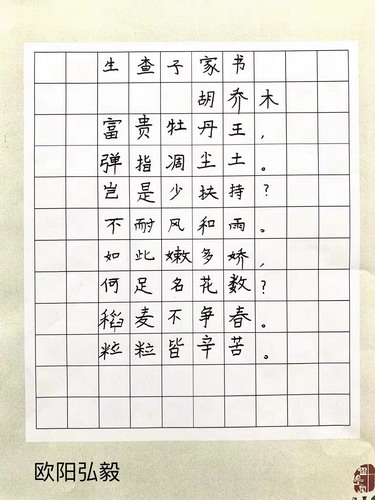 生查子家书
胡乔木
富贵牡丹王,
弹指凋尘土。
岂是少扶持?
不耐风和雨。
如此嫩多娇,
何足名花数?
稻麦不争春。
粒粒皆辛苦。
欧阳弘毅